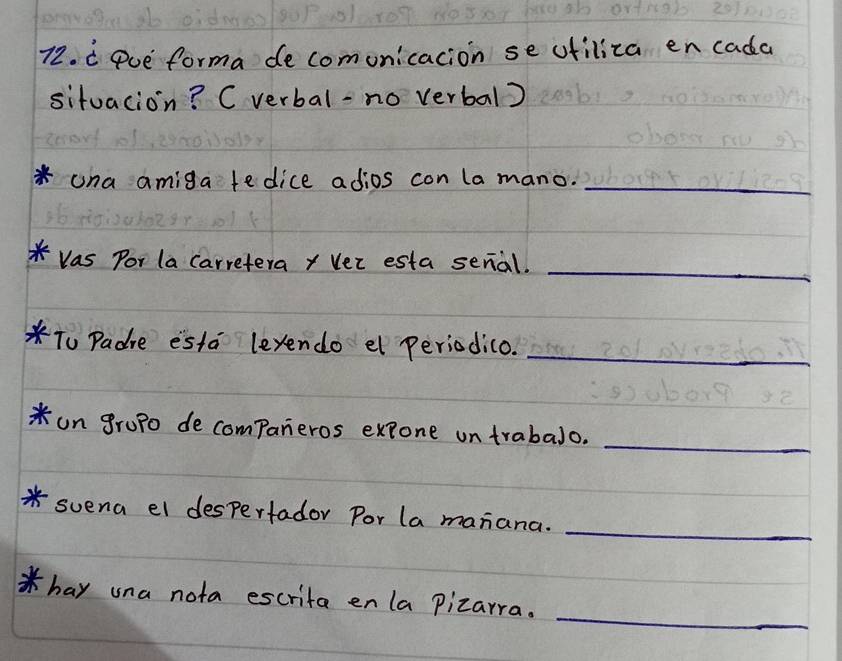 12. ¿ Qué forma de comunicación se utiliza en cada
situación? (verbal - no verbal)
* una amiga te dice adios con la mano. ________
* Vas Por la carretera y vez esta señal. ________
* Tu Padre está leyendo el periodico. ________
* un grupo de compañeros expone un trabajo. ________
* suena el despertador Por la mañana. ________
* hay una nota escrita en la Pizarra. ________